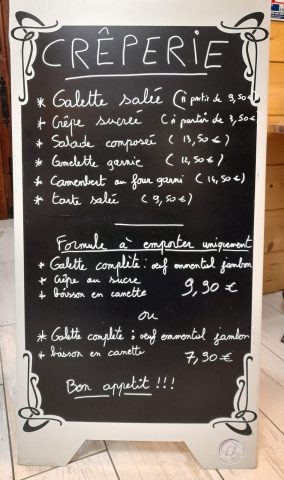 CRÊPERIE
* Galette salée (à partir de 9,50€)
* Crêpe sucrée (à partir de 3,50€)
* Salade composée (13,50€)
* Omelette garnie (12,50€)
* Camembert au four garni (14,50€)
* tarte salée (9,50€)
Formule à emporter uniquement
* Galette complète : œuf emmental jambon
+ Crêpe au sucre
+ boisson en canette 9,90€
ou
* Galette complète : œuf emmental jambon
+ boisson en canette 7,90€
Bon appetit !!!